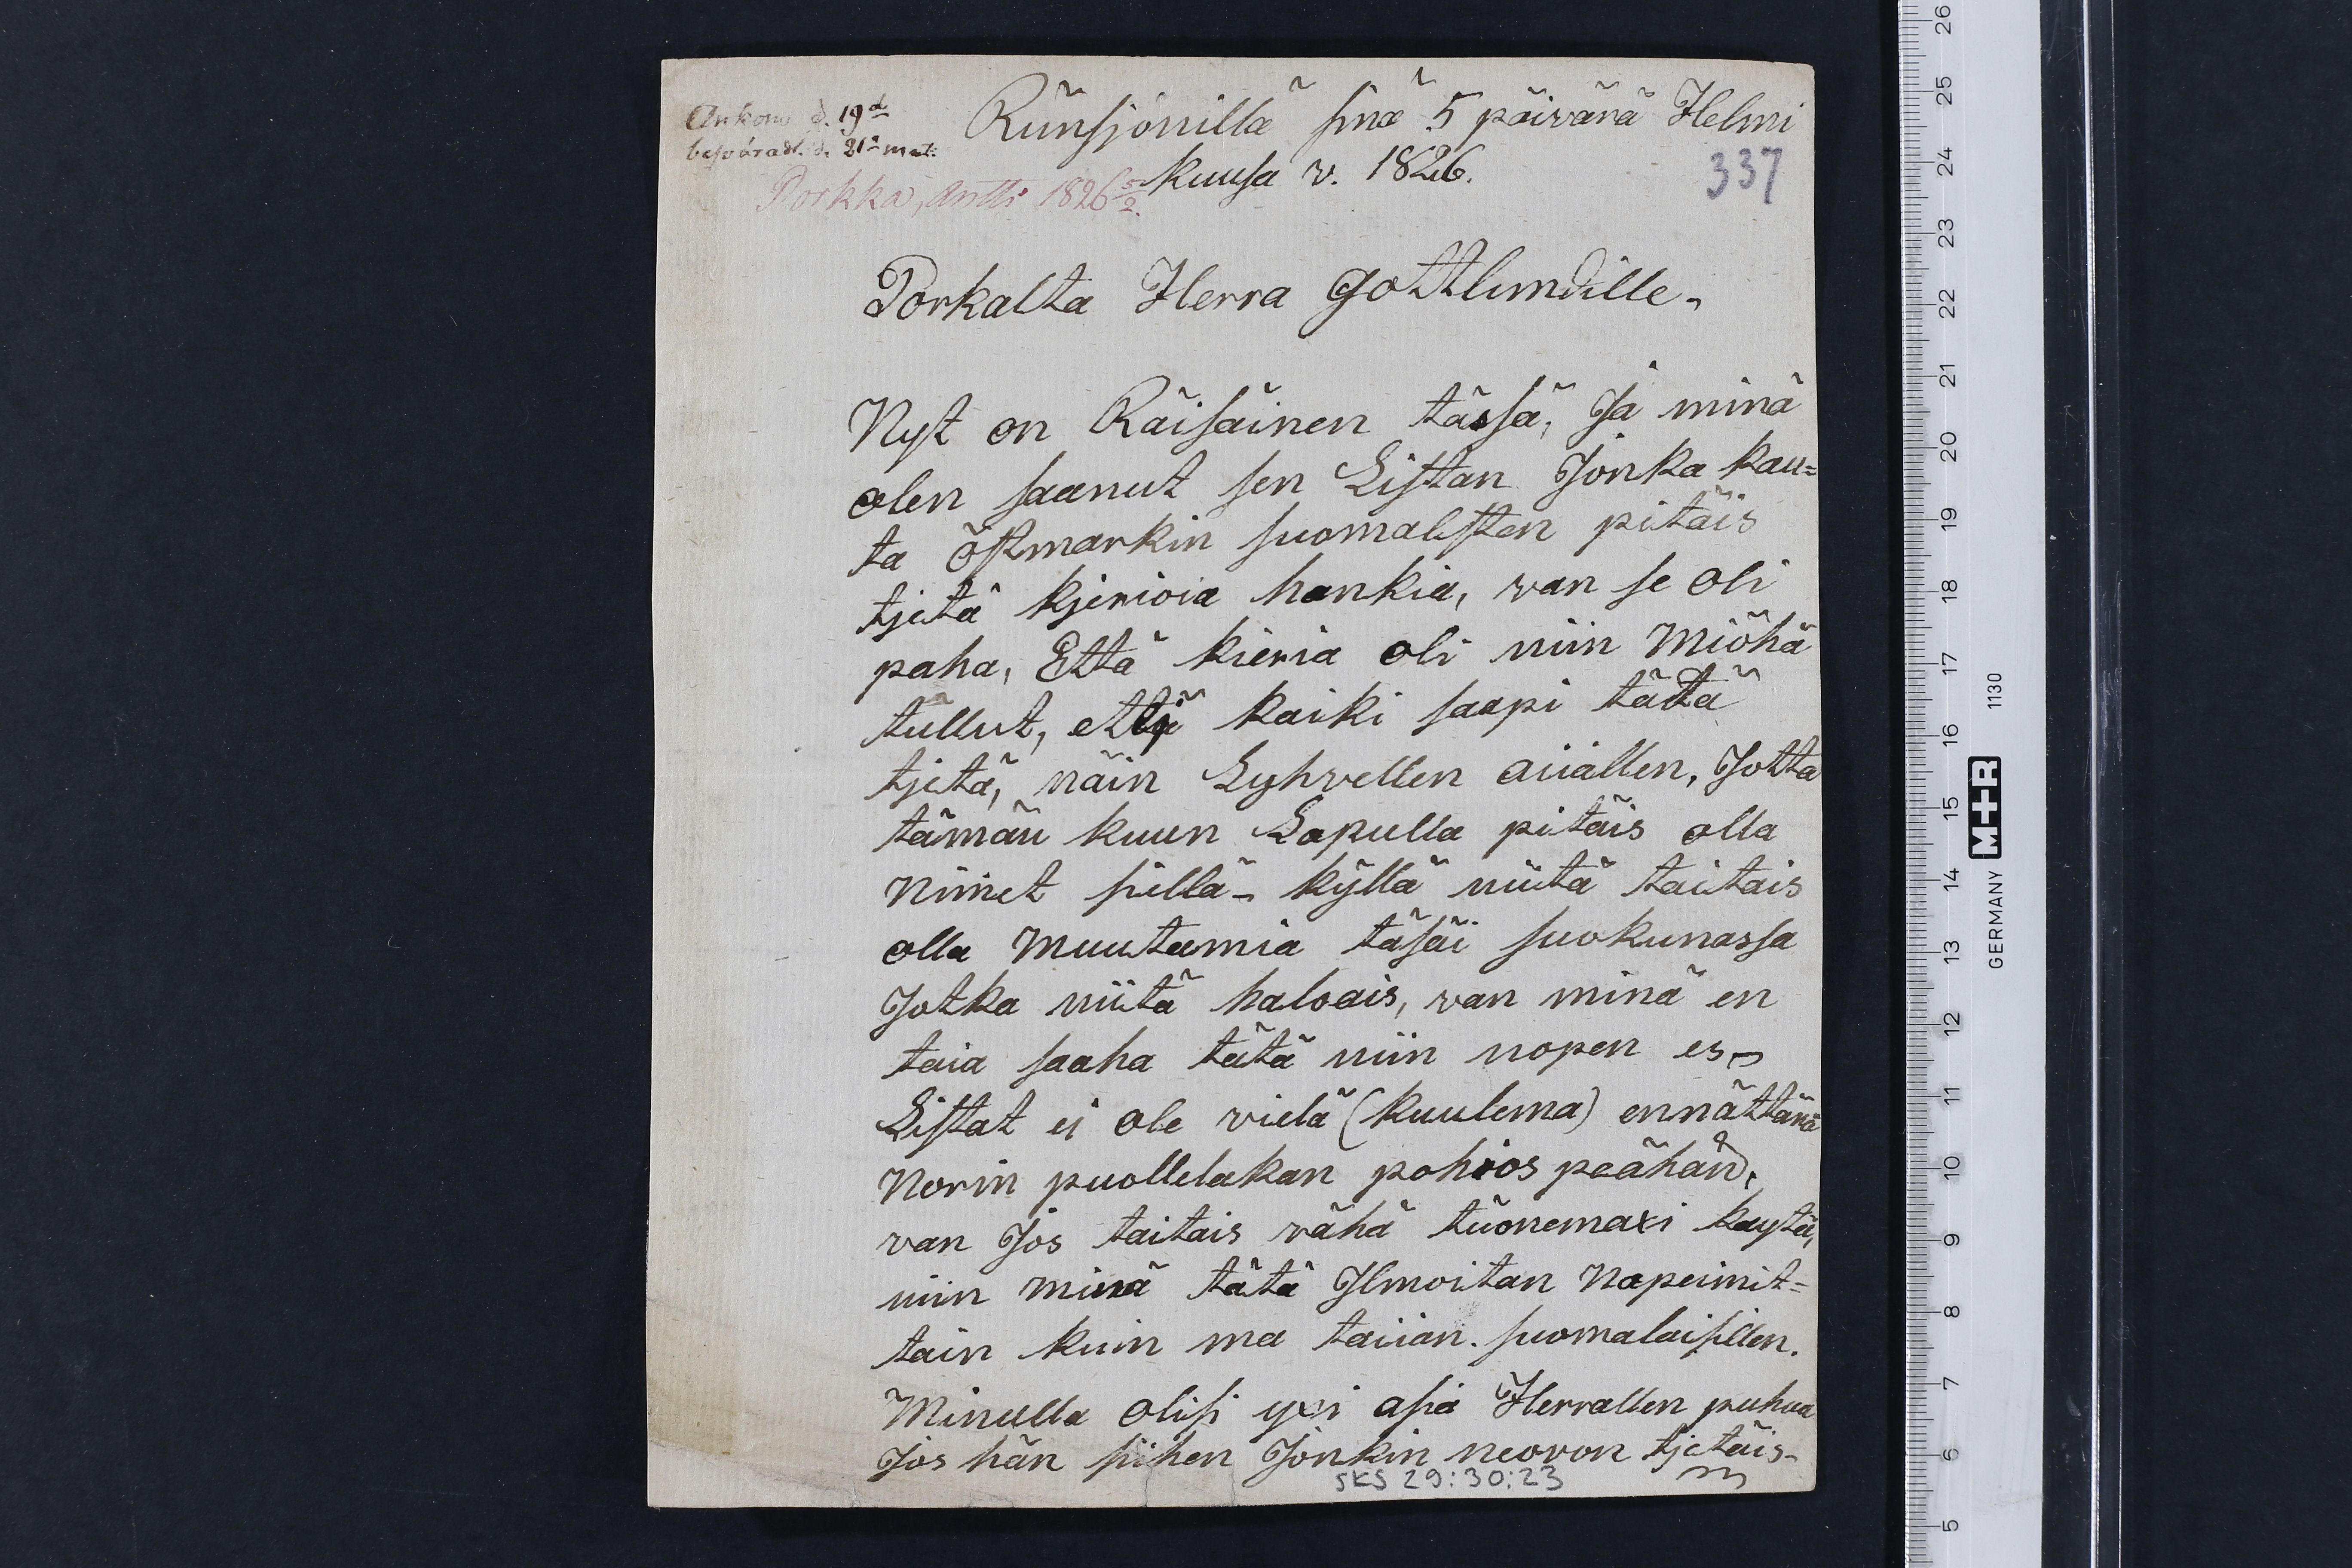 Ankom d. 19d
besvarad. d. 21a
Rünsjönillä sinä 5 päivänä Helmi
kuusa v. 1826.
337
Porkka, Antti 1826 5/2.
Porkalta Herra Gottlundille.
Nyt on Räisäinen tässä, Ja minä
olen saanut sen Listan Jonka kau=
ta östmarkin suomalisten pitäis
tjetä kjerioia hankia, van se oli
paha, Että kieria oli niin Miöhä
tullut, että kaiki saapi tätä
tjetä, näin Lyhvellen aiiallen, Jotta
tämän kuun Lopulla pitäis olla
nimet sillä - kyllä niitä taitais
olla Muutamia täsäi suokunassa
Jotka niitä haloais, van minä en
taia saaha tätä niin nopen es
Listat ei ole vielä (kuulema) ennättänä
Norin puollelakan pohios peähän,
van Jos taitais vähä tüonemaxi kaytä,
niin minä tätä Ilmoitan Nopeimit=
tain kuin ma taiian. suomalaisillen.
Minulla olisi yxi asia Herrallen puhua
Jos hän siihen Jonkin neovon tjetäis-
SKS 29:30:23
26
25
24
23
22
21
20
19
18
17
16
15
14
13
12
11
10
9
8
7
6
5
GERMANY M+R 1130